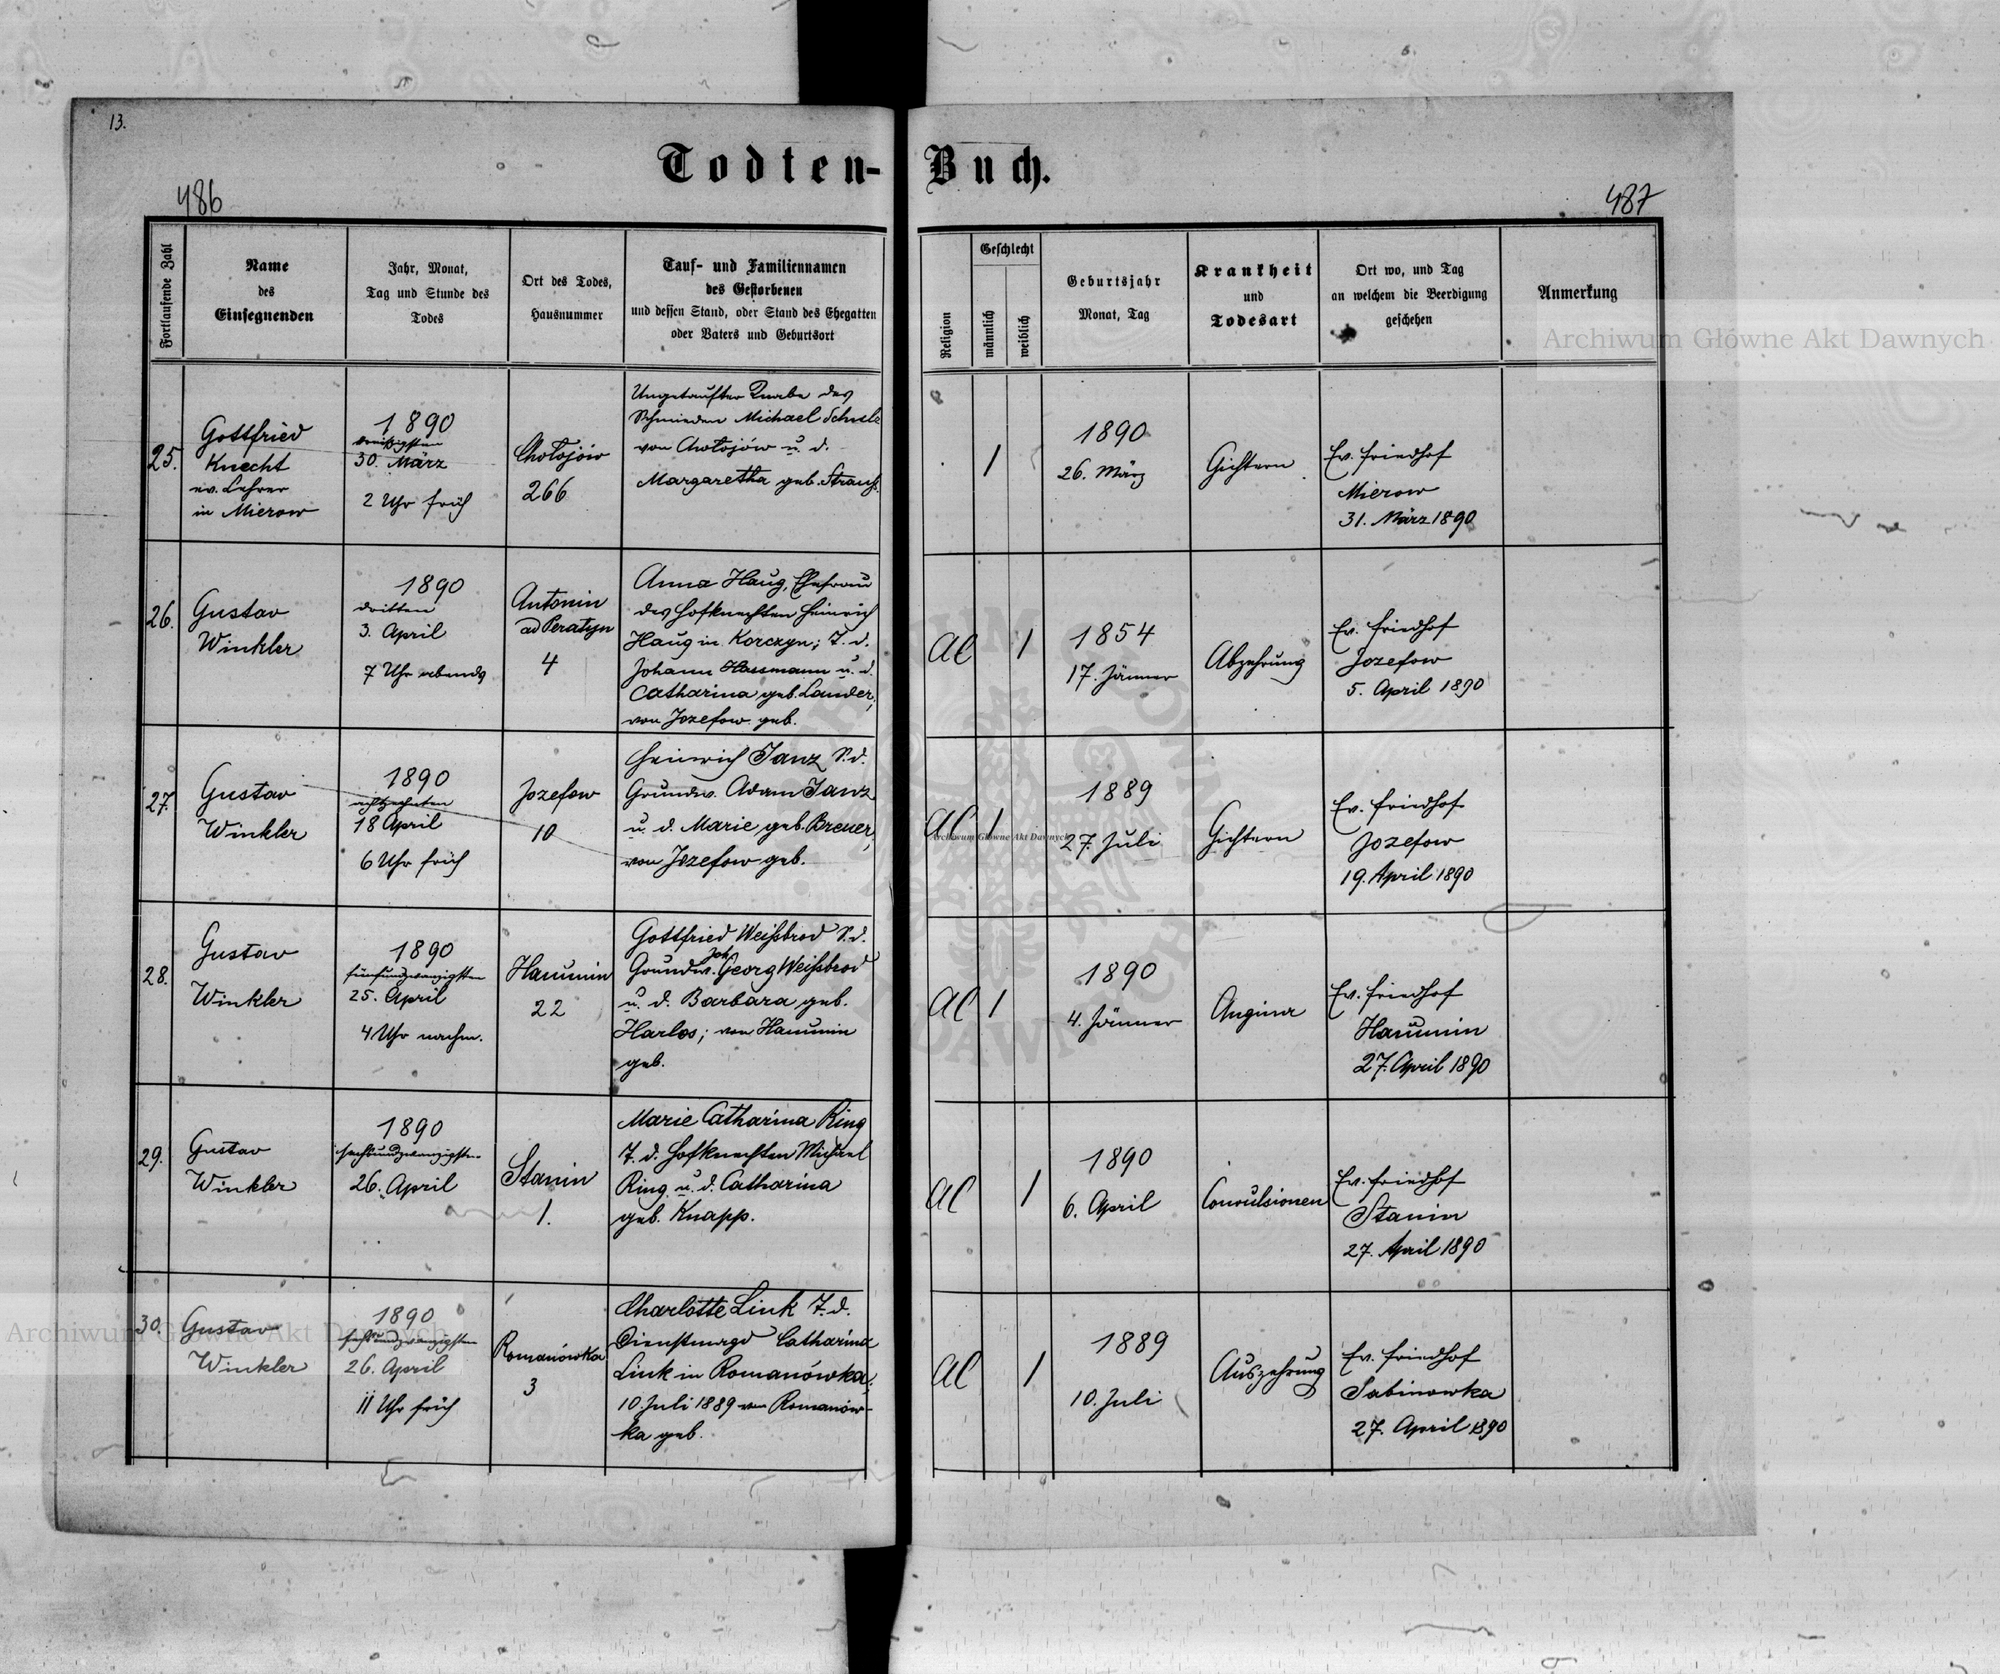 13.
Todten-Buch.
486
487
Fortlaufende Zahl
Name
des
Einsegnenden
Jahr, Monat,
Tag und Stunde des
Todes
Ort des Todes,
Hausnummer
Tauf- und Familiennamen
des Gestorbenen
und dessen Stand, oder Stand des Ehegatten
oder Vaters und Geburtsort
Religion
Geschlecht
männlich
weiblich
Geburtsjahr
Monat, Tag
Krankheit
und
Todesart
Ort wo, und Tag
an welchem die Beerdigung
geschehen
Anmerkung
Archiwum Główne Akt Dawnych
25.
Gottfried
Knecht
ev. Lehrer
in Mierow
1890
dreißigsten
30. März
2 Uhr früh
Chołojów
266
Ungetaufter Knabe des
Schmieden Michael
von Chołojów u. d.
Margaretha geb. Strauß.
1
1890
26. März
Gichtern
Ev. Friedhof
Mierow
31. März 1890
26.
Gustav
Winkler
1890
dritten
3. April
7 Uhr abends
Antonin
ad Peratyn
4
Anna Haug, Ehefrau
des Hofknechten Heinrich
Haug in Korczyn; T. d.
Johann Hassmann u. d.
Catharina geb. Lander,
von Jozefow geb.
AC
1
1854
17. Jänner
Abzehrung
Ev. Friedhof
Jozefow
5. April 1890
27.
Gustav
Winkler
1890
achtzehnten
18 April
6 Uhr früh
Jozefow
10
Heinrich Janz S. d.
Grundw. Adam Janz
u. d. Marie geb. Breuer,
von Jozefow geb.
AC
1
1889
27. Juli
Gichtern
Ev. Friedhof
Jozefow
19. April 1890
Archiwum Główne Akt Dawnych
28.
Gustav
Winkler
1890
fünfundzwanzigsten
25. April
4 Uhr nachm.
Hanunin
22
Gottfried Weißbrod S. d.
Grundw. Joh. Georg Weißbrod
u. d. Barbara geb.
Harlos; von Hanunin
geb.
AC
1
1890
4. Jänner
Angina
Ev. Friedhof
Hanunin
27. April 1890
29.
Gustav
Winkler
1890
sechsundzwanzigsten
26. April
Stanin
1.
Marie Catharina Ring
T. d. Hofknechten Michael
Ring u. d. Catharina
geb. Knapp.
AC
1
1890
6. April
Convulsionen
Ev. Friedhof
Stanin
27. April 1890
30.
Gustav
Winkler
1890
sechsundzwanzigsten
26. April
11 Uhr früh
Romanówka
3
Charlotte Link T. d.
Dienstmagd Catharina
Link in Romanówka;
10. Juli 1889 von Romanów-
ka geb.
AC
1
1889
10. Juli
Auszehrung
Ev. Friedhof
Sabinowka
27. April 1890
Archiwum Główne Akt Dawnych